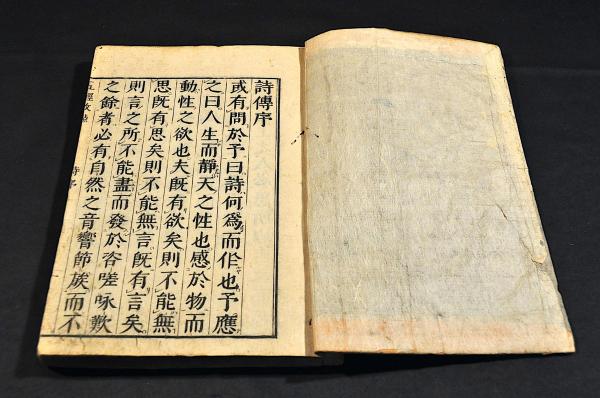 詩傳序
或有問於予曰詩何爲而作也予應
之曰人生而靜天之性也感於物而
動性之欲也夫旣有欲矣則不能無
思旣有思矣則不能無言旣有言矣
則言之所不能盡而發於咨嗟咏歎
之餘者必有自然之音響節族而不